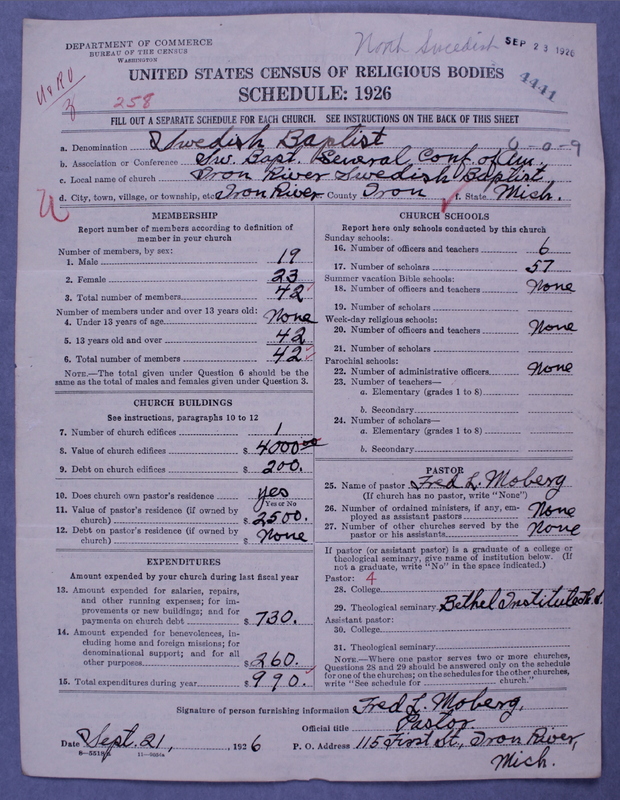 DEPARTMENT OF COMMERCE
BUREAU OF THE CENSUS
WASHINGTON
North Swedish
SEP 23 1926
4441
U&RU
3
258
UNITED STATES CENSUS OF RELIGIOUS BODIES
SCHEDULE: 1926
FILL OUT A SEPARATE SCHEDULE FOR EACH CHURCH. SEE INSTRUCTIONS ON THE BACK OF THIS SHEET
a. Denomination Swedish Baptist 0-0-9
b. Association or Conference Sw. Bapt. General Conf. of Am.
c. Local name of church Iron River Swedish Baptist
d. City, town, village, or township, etc Iron River County Iron f. State Mich.
U
MEMBERSHIP
Report number of members according to definition of
member in your church
Number of members, by sex:
1. Male 19
2. Female 23
3. Total number of members 42
Number of members under and over 13 years old:
4. Under 13 years of age None
5. 13 years old and over 42
6. Total number of members 42
NOTE.—The total given under Question 6 should be the
same as the total of males and females given under Question 3.
CHURCH BUILDINGS
See instructions, paragraphs 10 to 12
7. Number of church edifices 1
8. Value of church edifices $ 4000.00
9. Debt on church edifices $ 200.
10. Does church own pastor's residence yes
Yes or No
11. Value of pastor's residence (if owned by
church) $ 2500.
12. Debt on pastor's residence (if owned by
church) $ None
EXPENDITURES
Amount expended by your church during last fiscal year
13. Amount expended for salaries, repairs,
and other running expenses; for im-
provements or new buildings; and for
payments on church debt $ 730.
14. Amount expended for benevolences, in-
cluding home and foreign missions; for
denominational support; and for all
other purposes $ 260.
15. Total expenditures during year $ 990.
CHURCH SCHOOLS
Report here only schools conducted by this church
Sunday schools:
16. Number of officers and teachers 6
17. Number of scholars 57
Summer vacation Bible schools:
18. Number of officers and teachers None
19. Number of scholars
Week-day religious schools:
20. Number of officers and teachers None
21. Number of scholars
Parochial schools:
22. Number of administrative officers None
23. Number of teachers—
a. Elementary (grades 1 to 8)
b. Secondary
24. Number of scholars—
a. Elementary (grades 1 to 8)
b. Secondary
PASTOR
25. Name of pastor Fred L. Moberg
(If church has no pastor, write "None")
26. Number of ordained ministers, if any, em-
ployed as assistant pastors None
27. Number of other churches served by the
pastor or his assistants None
If pastor (or assistant pastor) is a graduate of a college or
theological seminary, give name of institution below. (If
not a graduate, write "No" in the space indicated.)
Pastor: 4
28. College
29. Theological seminary Bethel Institute
Assistant pastor:
30. College
31. Theological seminary
NOTE.—Where one pastor serves two or more churches,
Questions 28 and 29 should be answered only on the schedule
for one of the churches; on the schedules for the other churches,
write "See schedule for church."
Signature of person furnishing information Fred L. Moberg,
Official title Pastor.
Date Sept. 21, 1926 P. O. Address 115 First St., Iron River,
Mich.